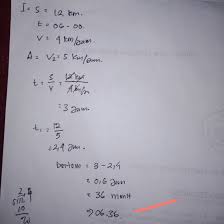 I = S = 12 km.
t = 06-00.
V = 4 km/jam.
A = V2 = 5 km/jam.
t = S/V = 12 km / 4 km/j
= 3 jam
t1 = 12/5
= 2,4 jam
bertemu = 3 - 2,4
= 0,6 jam
= 36 menit
= 06.36.